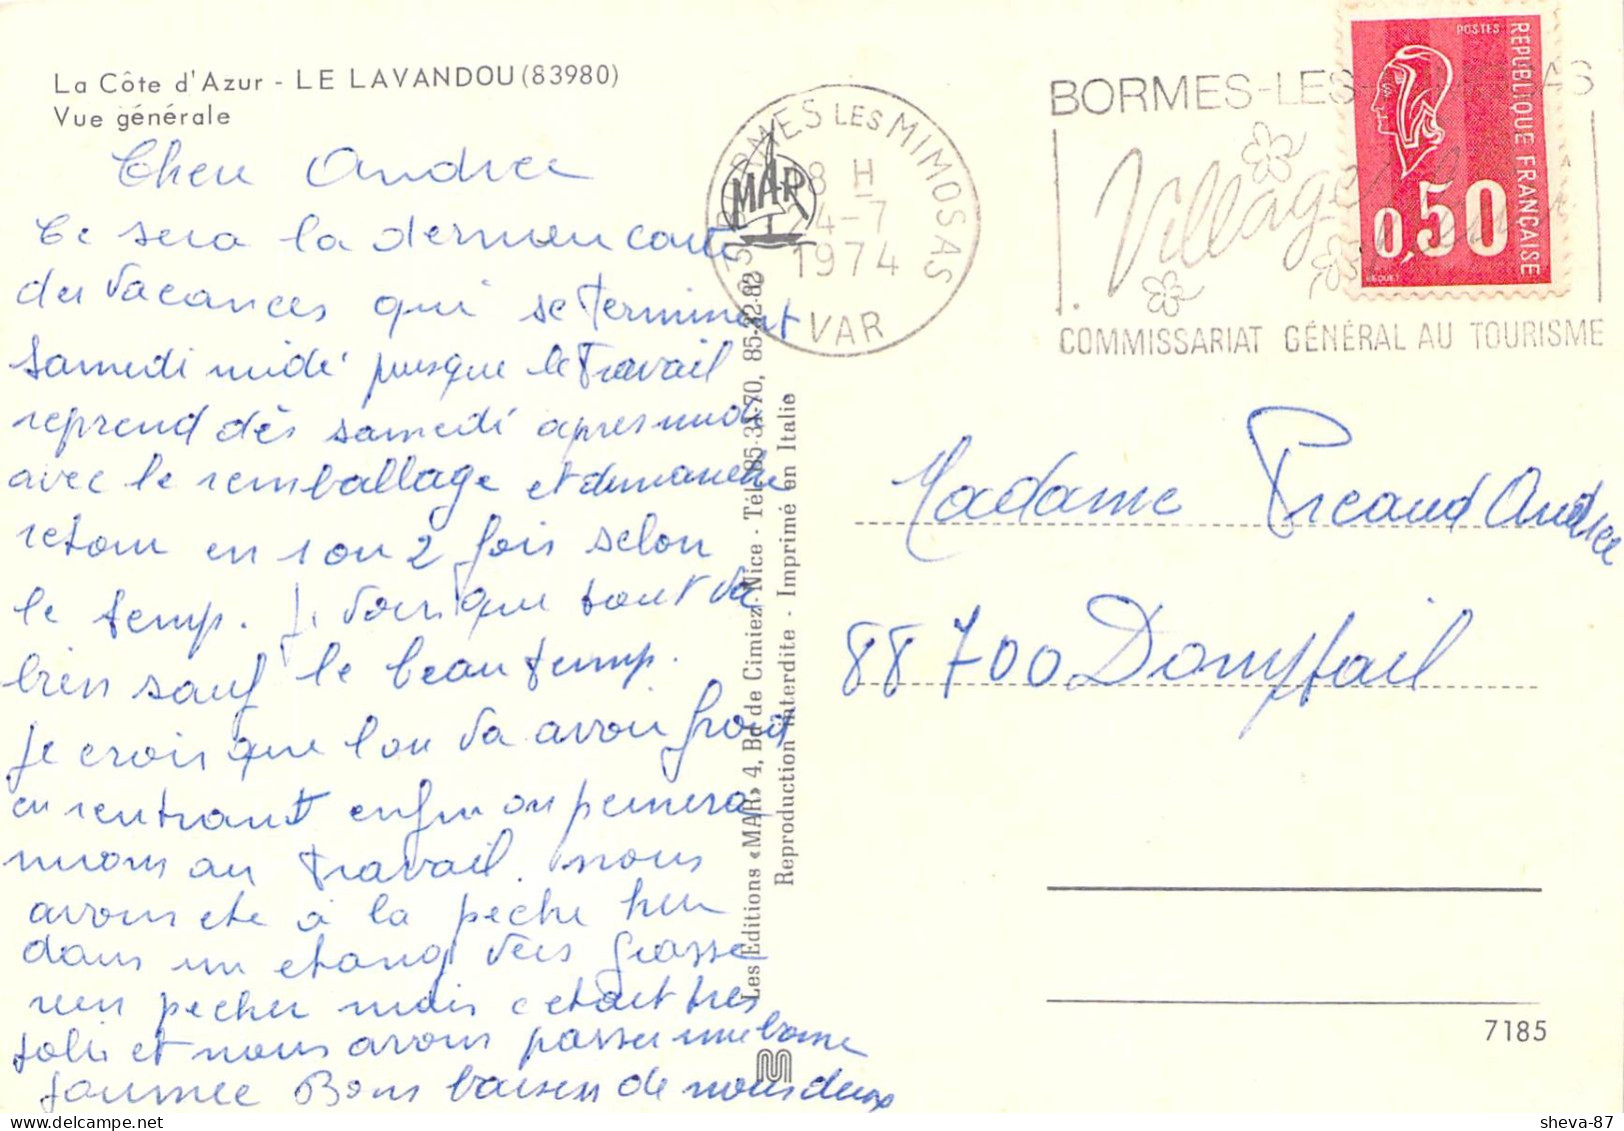 La Côte d'Azur - LE LAVANDOU (83980)
Vue générale
Cher Andree
Ce sera la derniere carte
des Vacances qui se terminent
Samedi midi puisque le Travail
reprend dès samedi apres midi
avec le remballage et dimanche
retour en 1 ou 2 fois selon
le temp. Je vois que tout va
bien sauf le beau temp.
Je crois que l'on va avoir froid
en rentrant enfin on pensera
moins au travail. nous
avons ete a la peche hier
dans un etang vers Grasse
rien pecher mais c etait tres
jolie et nous avons passer une bonne
journee Bons baisers de nous deux
Les Editions «MAR» 4, Bd de Cimiez · Nice · Tél. 85-34-70, 85-32-82
Reproduction interdite · Imprimé en Italie
MAR
BORMES LES MIMOSAS
18 H
24-7
1974
VAR
BORMES-LES-MIMOSAS
Village
COMMISSARIAT GÉNÉRAL AU TOURISME
POSTES
REPUBLIQUE FRANÇAISE
0,50
BEQUET
Madame Picaud Andree
88 700 Domptail
7185
sheva-87